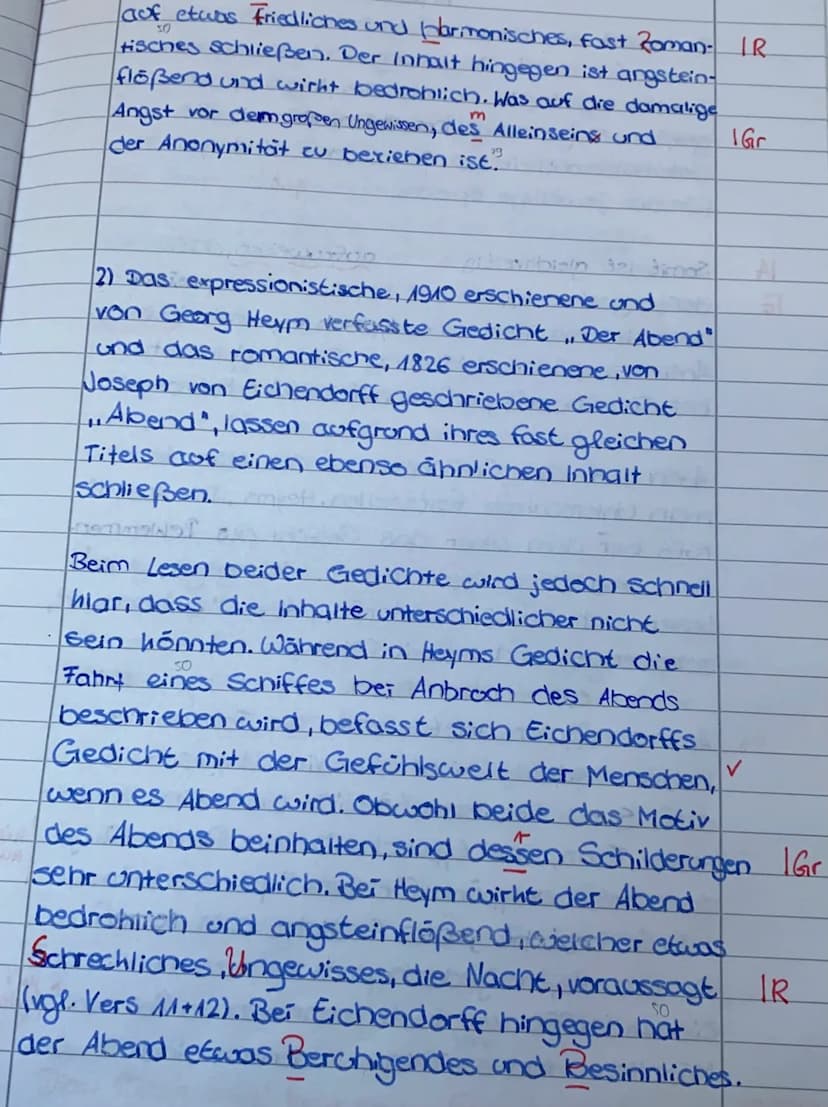 auf etwas Friedliches und Harmonisches, fast Roman- IR
tisches schließen. Der Inhalt hingegen ist angstein-
flößend und wirkt bedrohlich. Was auf die damalige
Angst vor dem großen Ungewissen, des Alleinseins und IGr
m
der Anonymität zu beziehen ist.
2) Das expressionistische, 1910 erschienene und
von Georg Heym verfasste Gedicht „Der Abend"
und das romantische, 1826 erschienene, von
Joseph von Eichendorff geschriebene Gedicht
„Abend", lassen aufgrund ihres fast gleichen
Titels auf einen ebenso ähnlichen Inhalt
schließen.
Beim Lesen beider Gedichte wird jedoch schnell
klar, dass die Inhalte unterschiedlicher nicht
sein könnten. Während in Heyms Gedicht die
Fahrt eines Schiffes bei Anbruch des Abends
50
beschrieben wird, befasst sich Eichendorffs
Gedicht mit der Gefühlswelt der Menschen, ✓
wenn es Abend wird. Obwohl beide das Motiv
des Abends beinhalten, sind dessen Schilderungen IGr
r
sehr unterschiedlich. Bei Heym wirkt der Abend
bedrohlich und angsteinflößend, welcher etwas
Schreckliches, Ungewisses, die Nacht, voraussagt IR
(vgl. Vers 11+12). Bei Eichendorff hingegen hat
50
der Abend etwas Beruhigendes und Besinnliches.